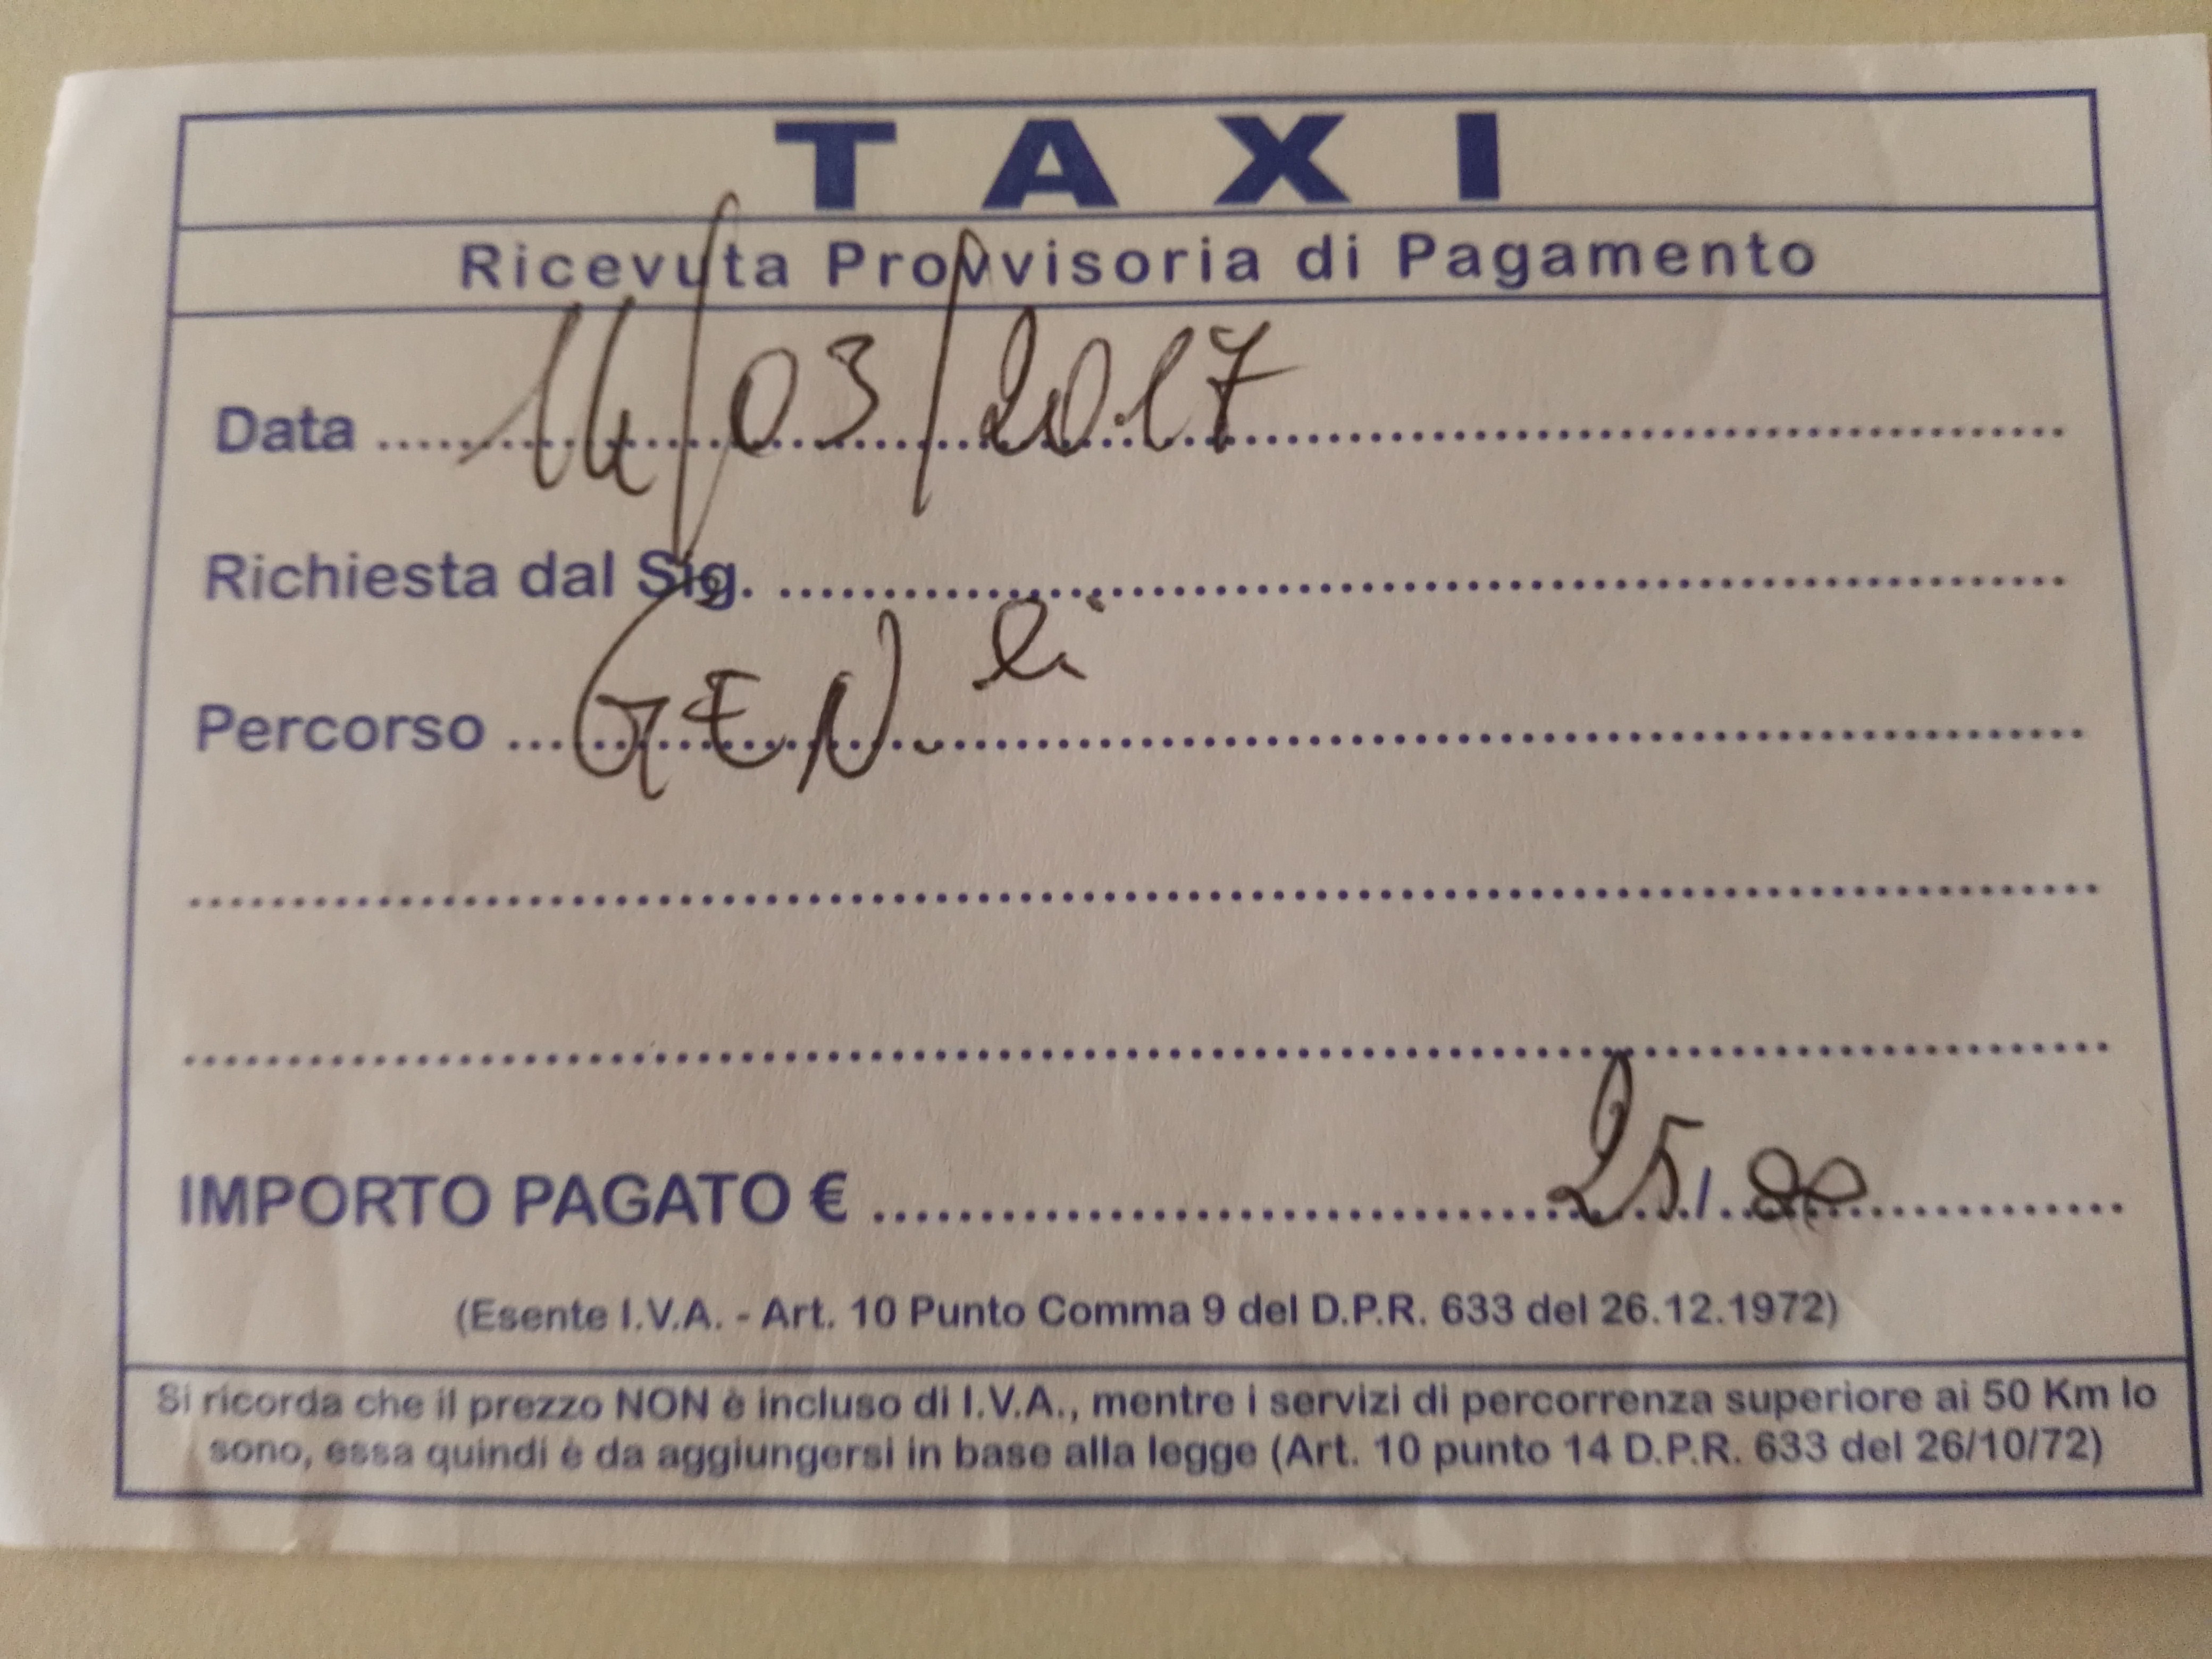 TAXI
Ricevuta Provvisoria di Pagamento
Data 14/03/2017
Richiesta dal Sig.
Percorso GEN. li
IMPORTO PAGATO € 25,00
(Esente I.V.A. - Art. 10 Punto Comma 9 del D.P.R. 633 del 26.12.1972)
Si ricorda che il prezzo NON è incluso di I.V.A., mentre i servizi di percorrenza superiore ai 50 Km lo
sono, essa quindi è da aggiungersi in base alla legge (Art. 10 punto 14 D.P.R. 633 del 26/10/72)